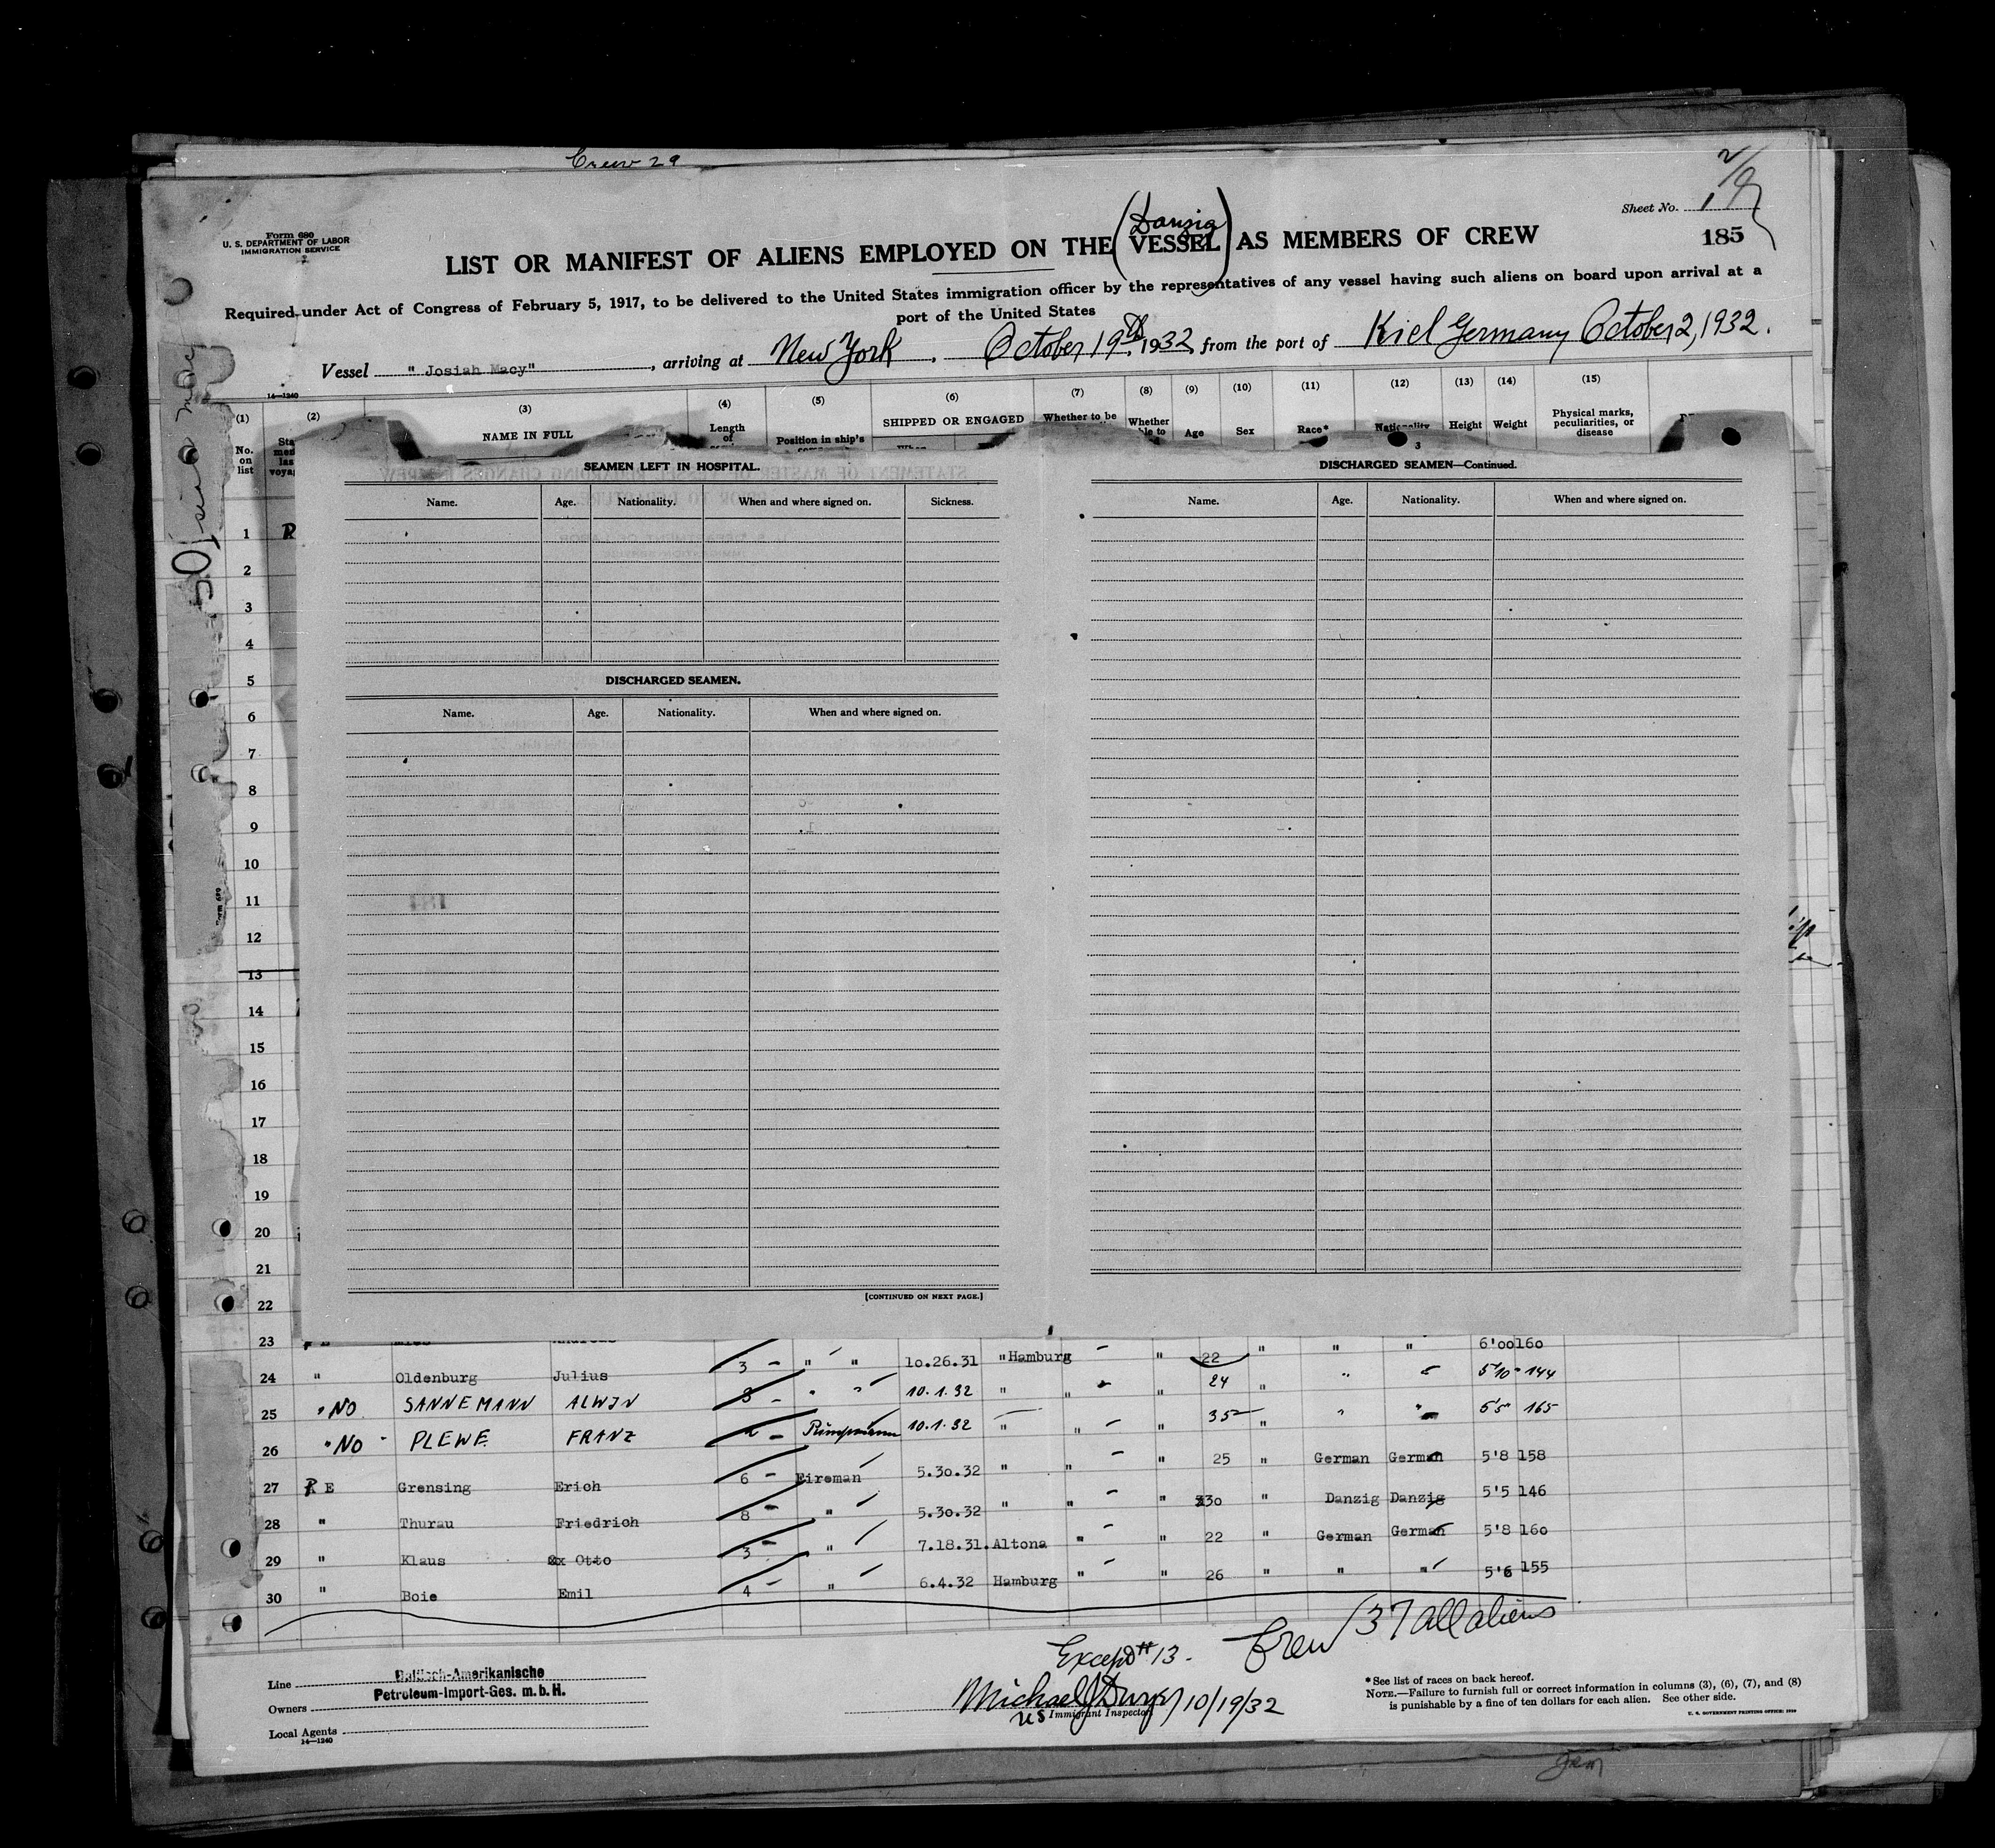 Crew 29
Form 680
U. S. DEPARTMENT OF LABOR
IMMIGRATION SERVICE
Sheet No. 1
185
(Danzig)
LIST OR MANIFEST OF ALIENS EMPLOYED ON THE VESSEL AS MEMBERS OF CREW
Required under Act of Congress of February 5, 1917, to be delivered to the United States immigration officer by the representatives of any vessel having such aliens on board upon arrival at a
port of the United States
Vessel "Josiah Macy", arriving at New York, October 19th, 1932, from the port of Kiel Germany October 2, 1932.
14—1240
(1) (2) (3) (4) (5) (6) (7) (8) (9) (10) (11) (12) (13) (14) (15)
No. on list
NAME IN FULL
Length of
Position in ship's
SHIPPED OR ENGAGED
Whether to be
Whether
Age
Sex
Race*
Nationality
Height
Weight
Physical marks, peculiarities, or disease
3
SEAMEN LEFT IN HOSPITAL.
Name. Age. Nationality. When and where signed on. Sickness.
DISCHARGED SEAMEN.
Name. Age. Nationality. When and where signed on.
[CONTINUED ON NEXT PAGE.]
DISCHARGED SEAMEN—Continued.
Name. Age. Nationality. When and where signed on.
1
2
3
4
5
6
7
8
9
10
11
12
13
14
15
16
17
18
19
20
21
22
23 6'00 160
24 " Oldenburg Julius 3 - " " 10.26.31 " Hamburg " 22 " " "
25 " NO SANNEMANN ALWIN 8 - " " 10.1.32 " " " 24 " " " 5'10" 144
26 " NO PLEWE FRANZ 10.1.32 " " " 35 " " " 5'5" 165
27 R E Grensing Erich 6 - Fireman 5.30.32 " " " 25 " German German 5'8 158
28 " Thurau Friedrich 8 - " 5.30.32 " " " 30 " Danzig Danzig 5'5 146
29 " Klaus Otto 3 - " 7.18.31. Altona " " 22 " German German 5'8 160
30 " Boie Emil 4 - " 6.4.32 Hamburg " " 26 " " " 5'6 155
Except #13. Crew 37 all aliens
Line
Baltisch-Amerikanische
Petroleum-Import-Ges. m. b. H.
Owners
Local Agents
14—1240
10/19/32
US Immigrant Inspector
* See list of races on back hereof.
NOTE.—Failure to furnish full or correct information in columns (3), (6), (7), and (8)
is punishable by a fine of ten dollars for each alien. See other side.
U. S. GOVERNMENT PRINTING OFFICE: 1930